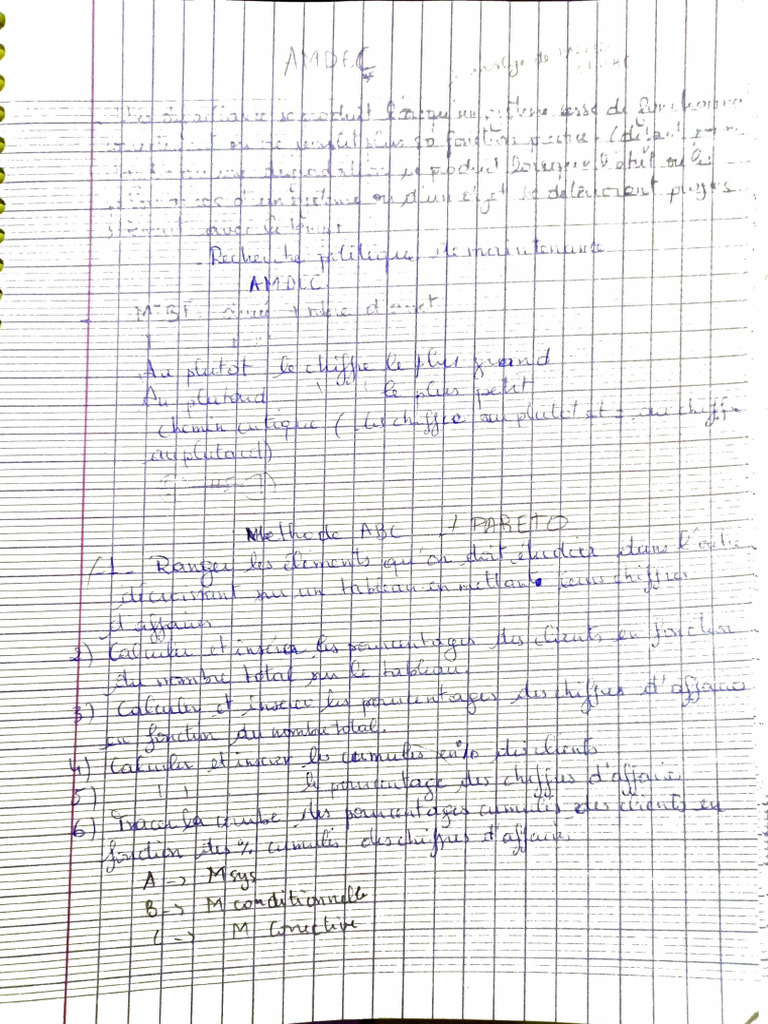 AMDEC
se produit
ou ne remplit plus sa fonction
se produit lorsque l'état ou les
d'un système ou d'un objet se détériorent
avec le temps
Recherche politique de maintenance
AMDEC
MTBF
Au plutot le chiffre le plus grand
Au plutard " " le plus petit
chemin critique ( les chiffre au plutôt = au chiffre
au plutard)
Methode ABC / PARETO
1- Ranger les éléments qu'on doit étudier dans l'ordre
décroissant sur un tableau en mettant leurs chiffres
d'affaires
2) Calculer et insérer les pourcentages des clients en fonction
du nombre total sur le tableau.
3) Calculer et insérer les pourcentages des chiffres d'affaires
en fonction du nombre total.
4) Calculer et insérer les cumulés en % des clients
5) " " le pourcentage des chiffres d'affaire
6) Tracer la courbe des pourcentages cumulés des clients en
fonction des % cumulés des chiffres d'affaires
A -> M sys
B -> M conditionnelle
C -> M Corrective